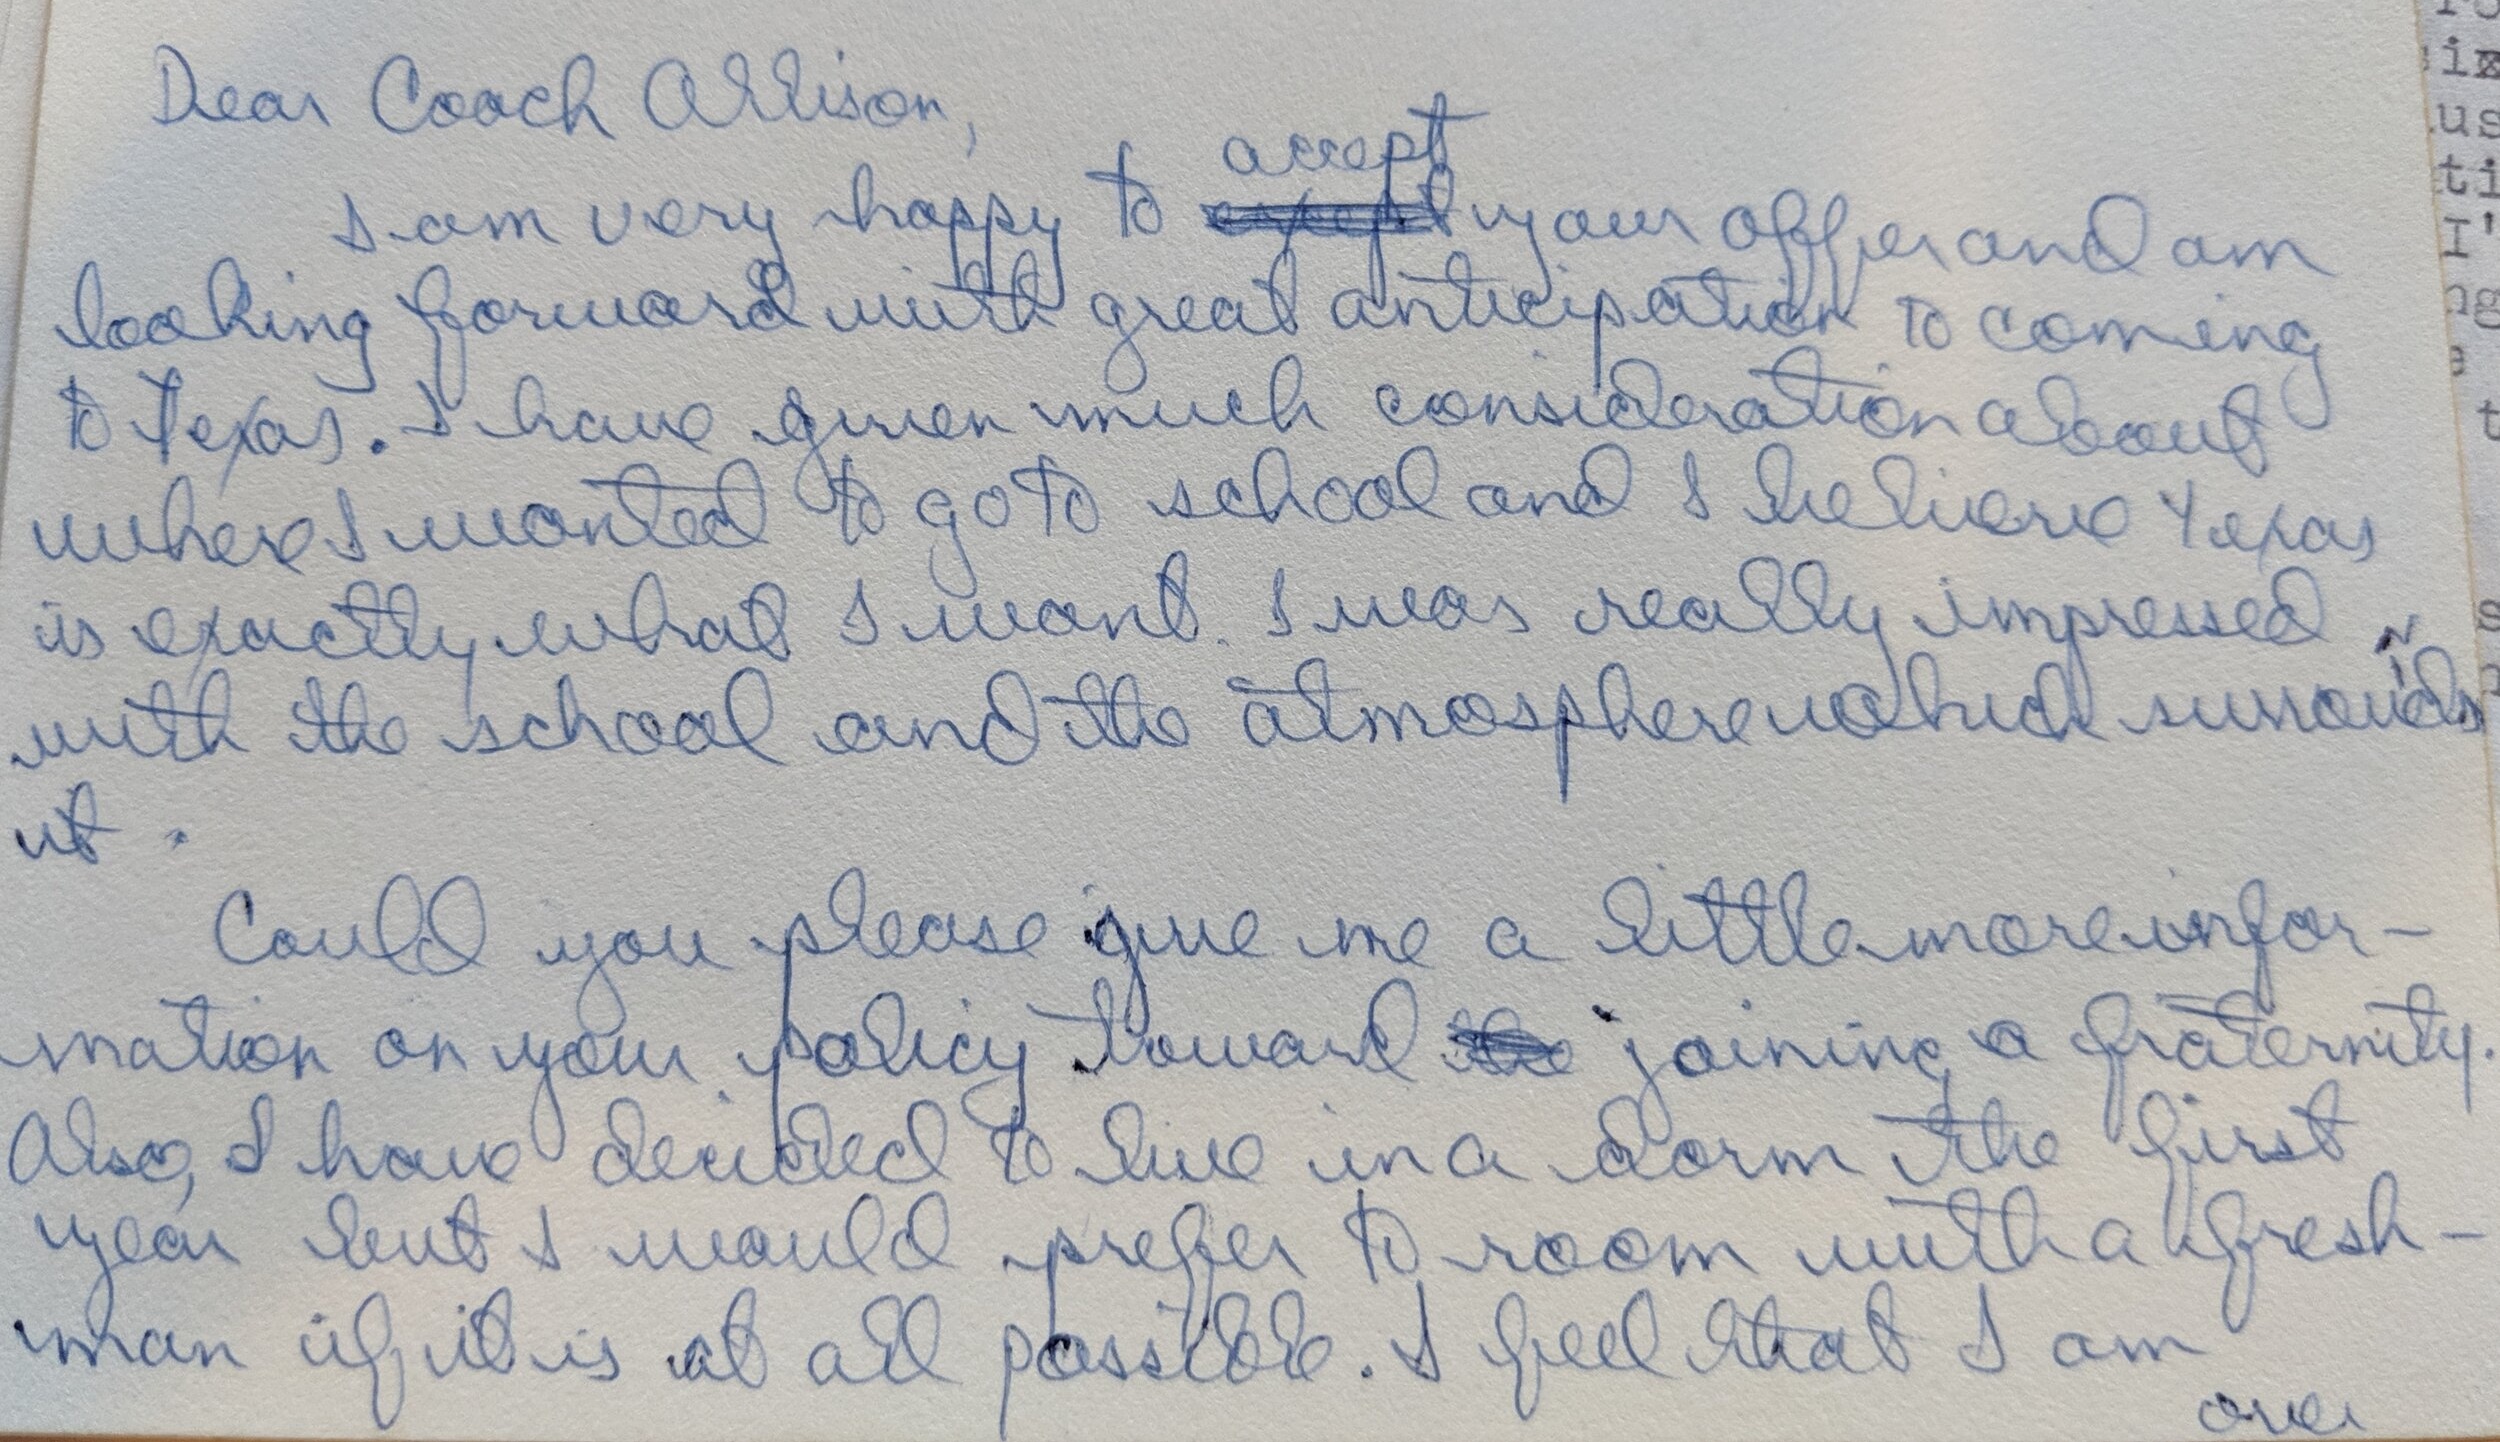 Dear Coach Allison,
I am very happy to accept your offer and am
looking forward with great anticipation to coming
to Texas. I have given much consideration about
where I wanted to go to school and I believe Texas
is exactly what I want. I was really impressed
with the school and the atmosphere which surrounds
it.
Could you please give me a little more infor-
mation on your policy toward joining a fraternity.
Also, I have decided to live in a dorm the first
year but I would prefer to room with a fresh-
man if it is at all possible. I feel that I am
over